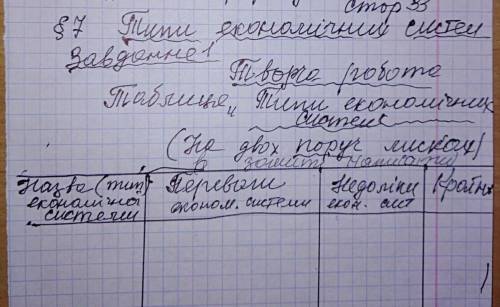 стор 33
§ 7 Типи економічних систем
Завдання 1
Творча робота
Таблиця „ Типи економічних
систем
(На двох поруч листках)
в зошиті написати
Назва (тип)
економічної
системи
Переваги
економ. системи
Недоліки
екон. сист
Країни